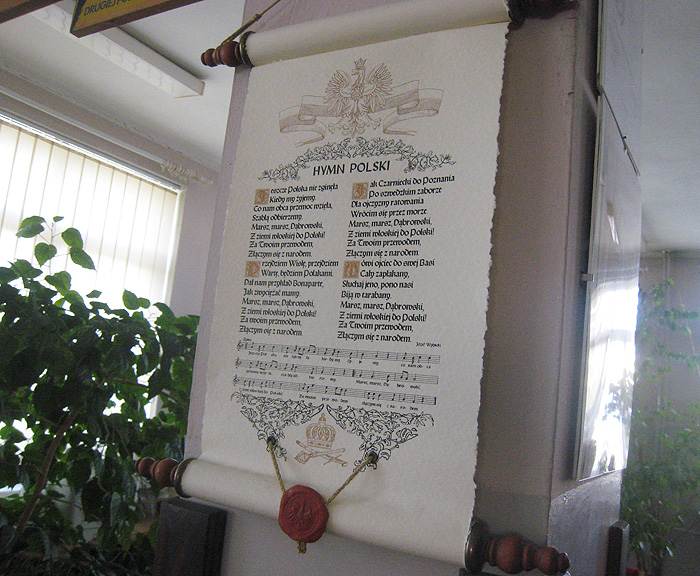 DRUGIEJ
HYMN POLSKI
Jeszcze Polska nie zginęła
Kiedy my żyjemy.
Co nam obca przemoc wzięła,
Szablą odbierzemy.
Marsz, marsz, Dąbrowski,
Z ziemi włoskiej do Polski!
Za Twoim przewodem,
Złączym się z narodem.
Przejdziem Wisłę, przejdziem
Wartę, będziem Polakami.
Dał nam przykład Bonaparte,
Jak zwyciężać mamy.
Marsz, marsz, Dąbrowski,
Z ziemi włoskiej do Polski!
Za Twoim przewodem,
Złączym się z narodem.
Jak Czarniecki do Poznania
Po szwedzkim zaborze
Dla ojczyzny ratowania
Wrócim się przez morze.
Marsz, marsz, Dąbrowski,
Z ziemi włoskiej do Polski!
Za Twoim przewodem,
Złączym się z narodem.
Mówi ojciec do swej Basi
Cały zapłakany,
Słuchaj jeno, pono nasi
Biją w tarabany.
Marsz, marsz, Dąbrowski,
Z ziemi włoskiej do Polski!
Za Twoim przewodem,
Złączym się z narodem.
Józef Wybicki